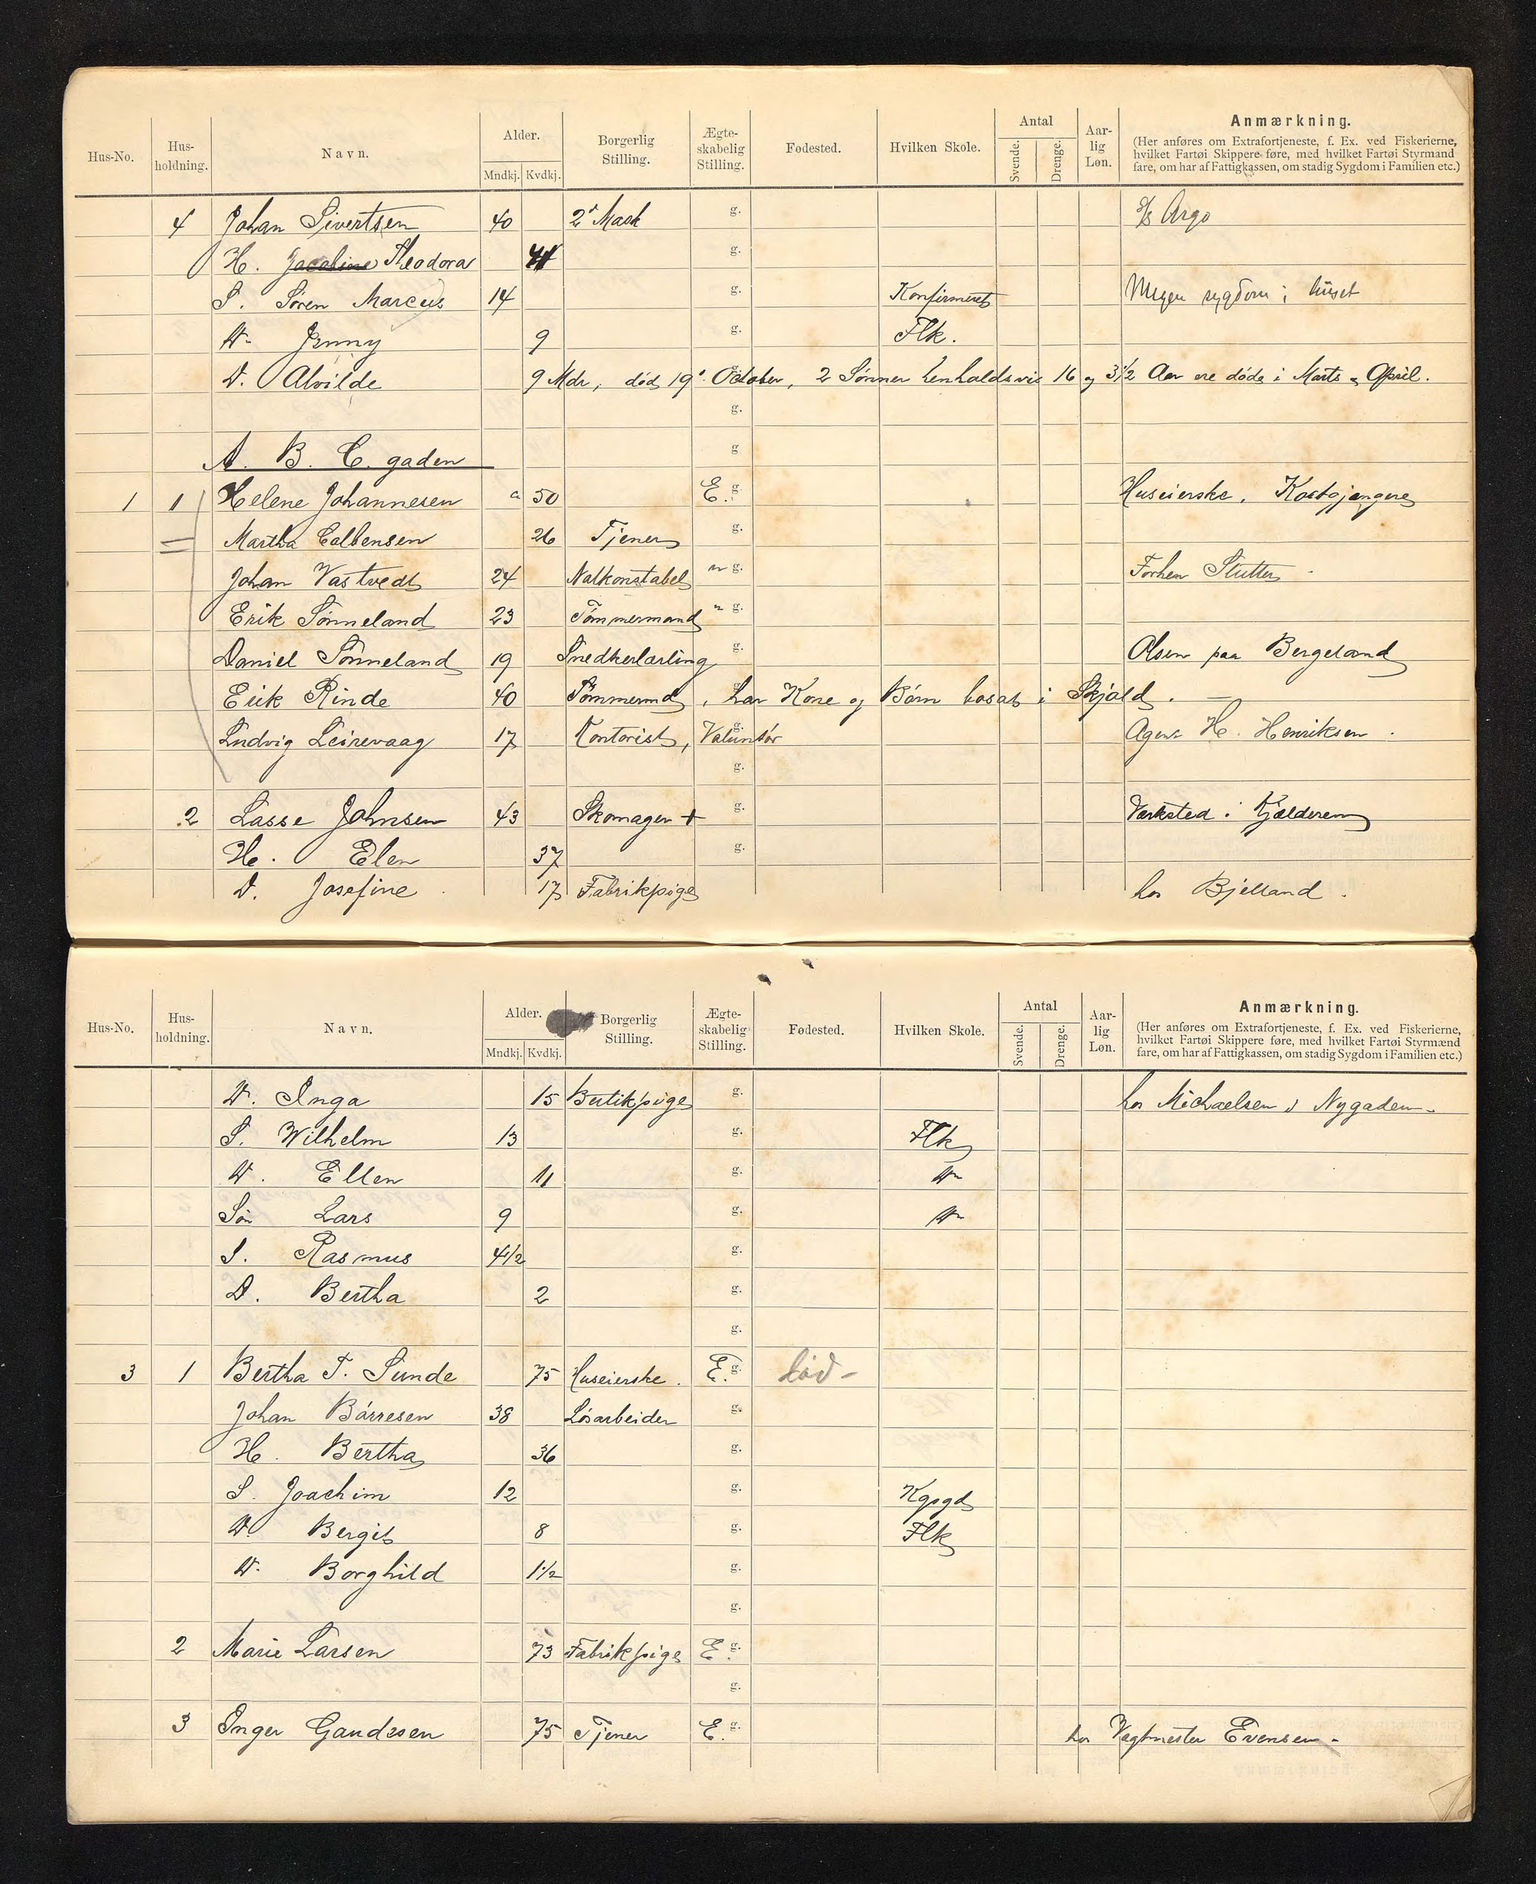 Hus-No. Hus-holdning. Navn. Alder. Mndkj. Kvdkj. Borgerlig Stilling. Ægte-skabelig Stilling. Fødested. Hvilken Skole. Antal Svende. Drenge. Aar-lig Løn. Anmærkning.
(Her anføres om Extrafortjeneste, f. Ex. ved Fiskerierne,
hvilket Fartøi Skippere føre, med hvilket Fartøi Styrmand
fare, om har af Fattigkassen, om stadig Sygdom i Familien etc.)
4 Johan Sivertsen 40 2d Mask g. S/S Argo
H. Jacobine Theodora 41 g.
S. Søren Marcus 14 g. Konfirmeret Megen sygdom i huset
D. Jenny 9 g. Flk.
D. Alvilde 9 Mdr, død 19de October, 2 Sønner henholdsvis 16 og 3 1/2 Aar ere døde i Marts & April.
g.
A. B. C. gaden g
1 1 Helene Johannesen 50 E. g. Huseierske, Kostgjengere
Martha Colbensen 26 Tjener g.
Johan Vastvedt 24 Natkonstabel " g. Forhen Stutter
Erik Sønneland 23 Tømmermand " g.
Daniel Sønneland 19 Snedkerlærling g. Olsen paa Bergeland
Erik Rinde 40 Tømmermd, har Kone og Børn bosat i Skjold.
Ludvig Leirevaag 17 Kontorist, Voluntør g. Agent H. Henriksen.
g.
2 Lasse Johnsen 43 Skomager + g. Værksted i Kjælderen
H. Elen 37 g.
D. Josefine 17 Fabrikpige hos Bjelland.
Hus-No. Hus-holdning. Navn. Alder. Mndkj. Kvdkj. Borgerlig Stilling. Ægte-skabelig Stilling. Fødested. Hvilken Skole. Antal Svende. Drenge. Aar-lig Løn. Anmærkning.
(Her anføres om Extrafortjeneste, f. Ex. ved Fiskerierne,
hvilket Fartøi Skippere føre, med hvilket Fartøi Styrmænd
fare, om har af Fattigkassen, om stadig Sygdom i Familien etc.)
D. Inga 15 Butikpige g. hos Michaelsen i Nygaden.
S. Wilhelm 13 g. Flk
D. Ellen 11 g. "
Søn Lars 9 g. "
S. Rasmus 4 1/2 g.
D. Bertha 2 g.
g.
3 1 Bertha T. Sunde 75 Huseierske. E. g. død -
Johan Børresen 38 Løsarbeider g.
H. Bertha 36 g.
S. Joachim 12 g. Kgsgd
D. Bergit 8 g. Flk
D. Borghild 1 1/2 g.
g.
2 Marie Larsen 73 Fabrikpige E. g.
g.
3 Inger Gaudesen 75 Tjener E. g. hos Vagtmester Evensen -